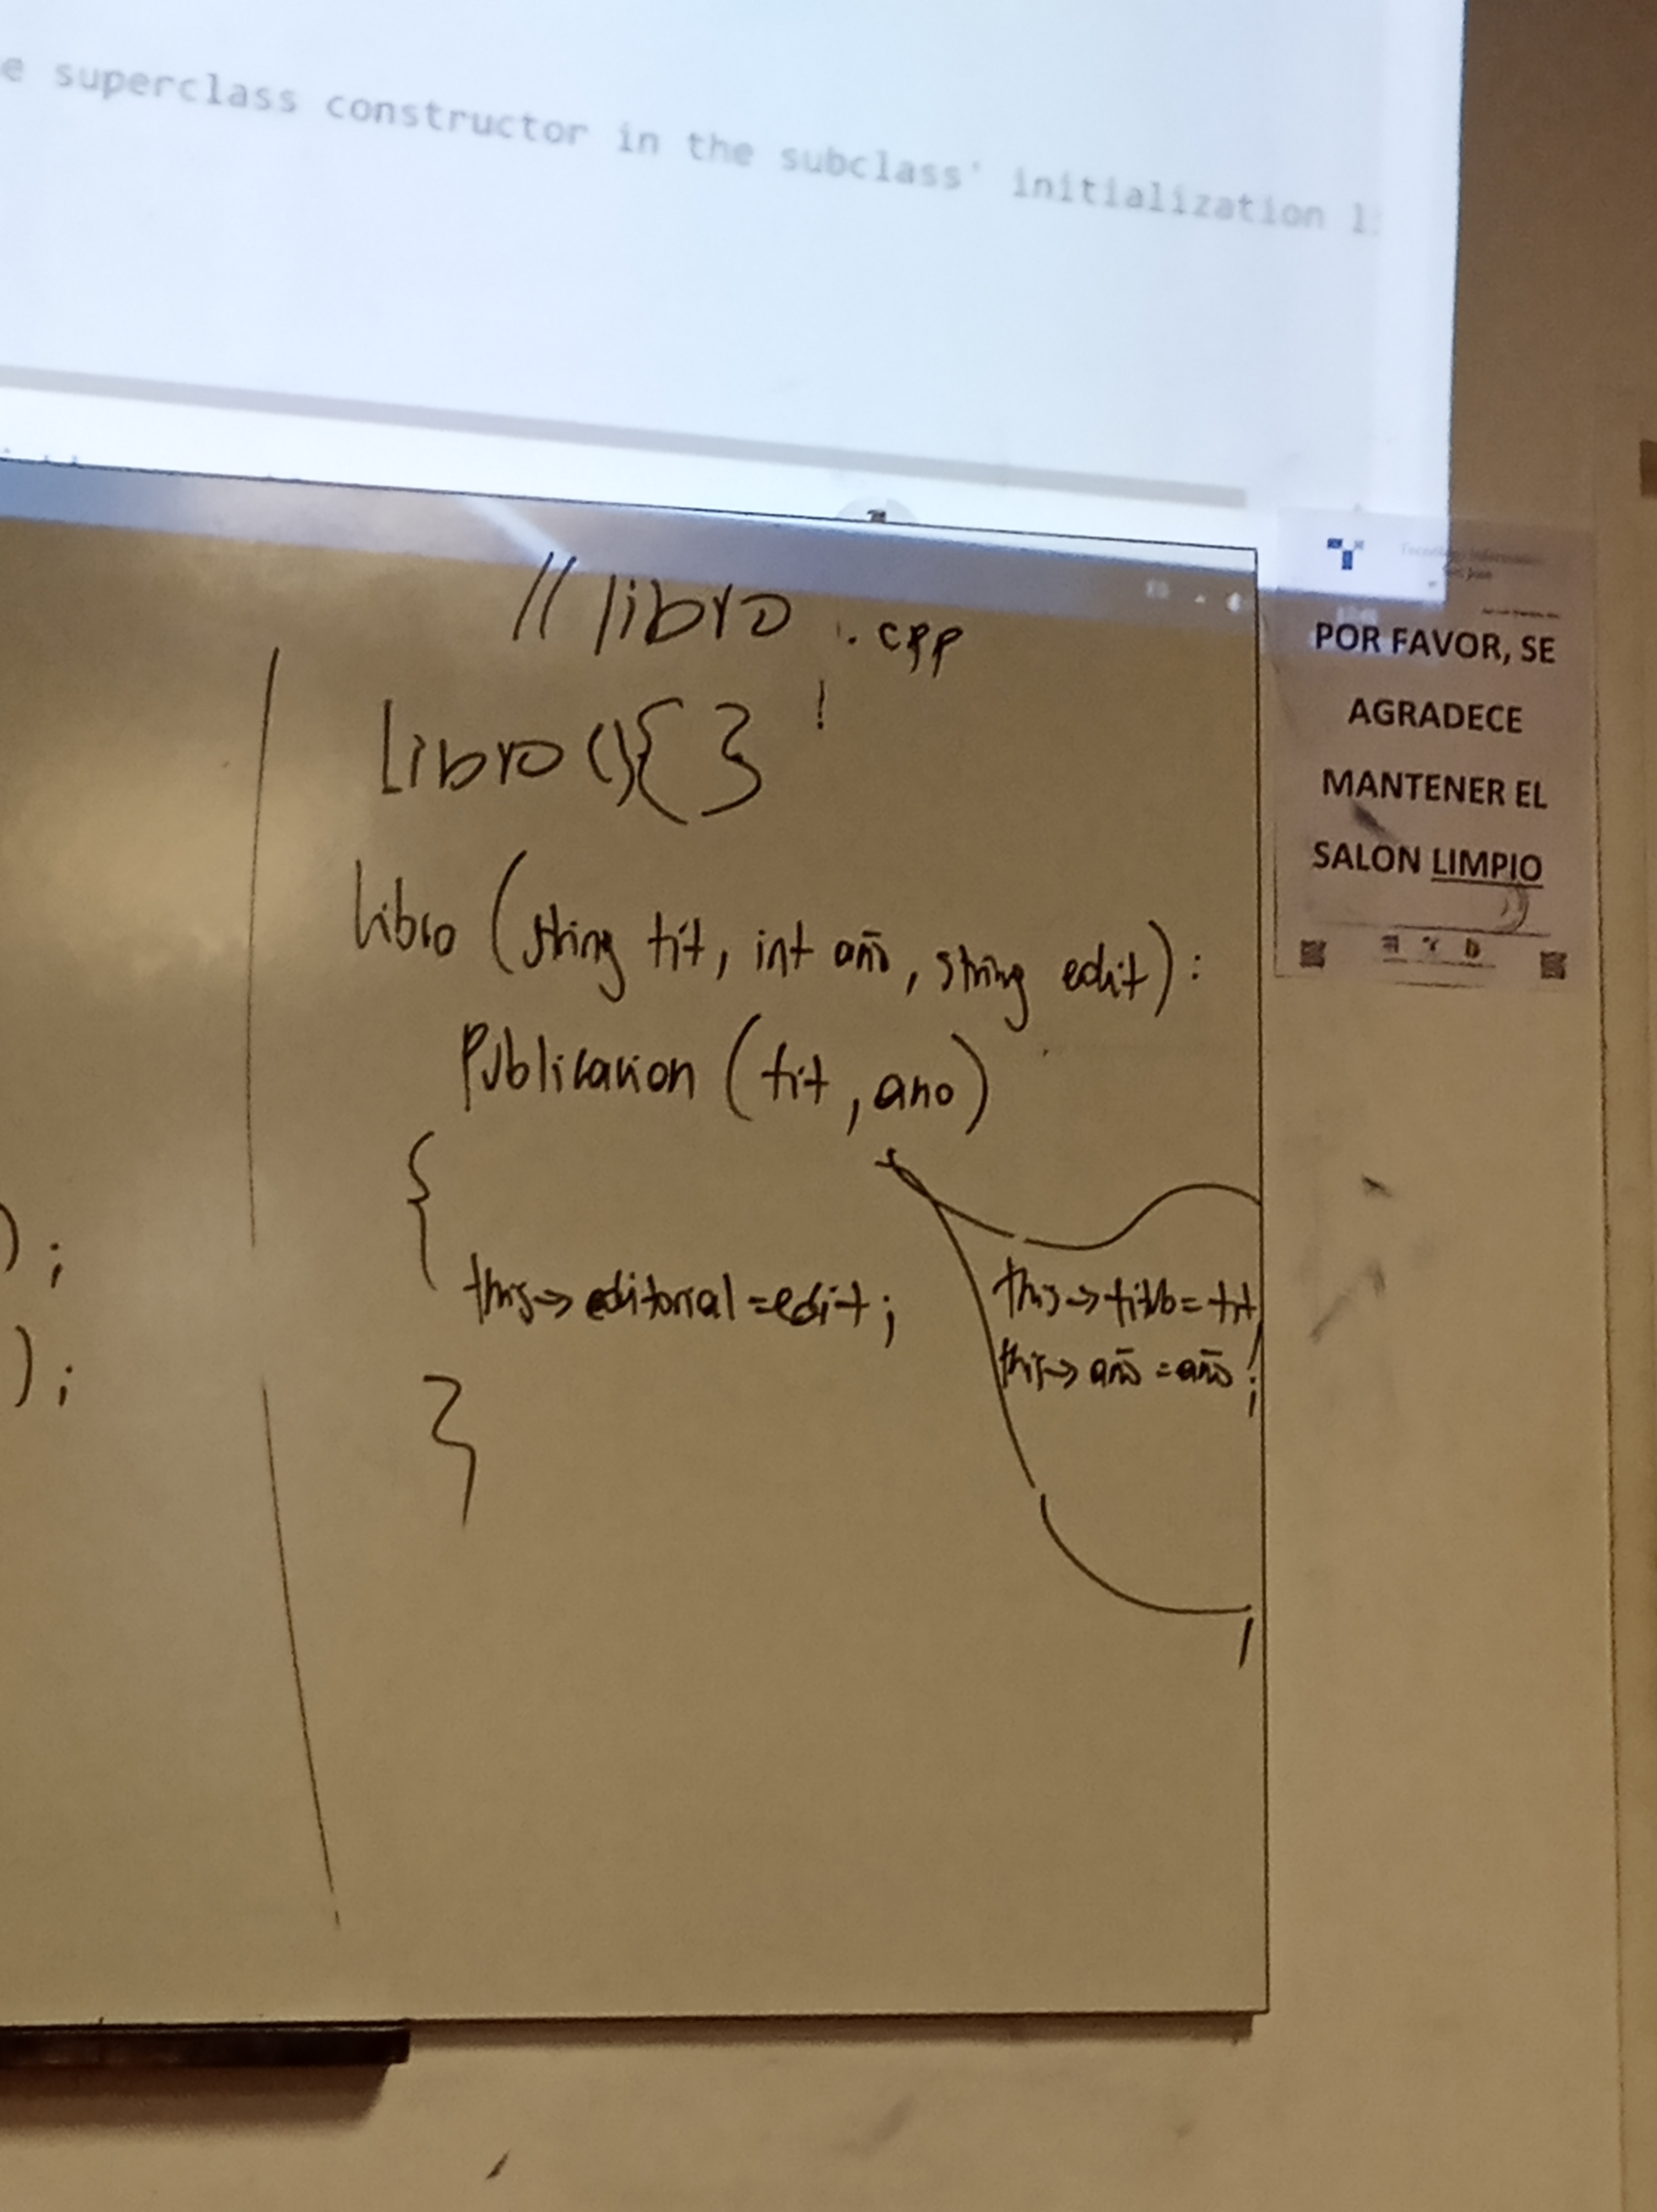 e superclass constructor in the subclass' initialization l
// libro .cpp
Libro(){ }
Libro (string tit, int año, string edit):
Publicacion (tit, ano)
{
this-> editorial = edit;
}
this-> titulo = tit;
this-> año = año;
);
);
POR FAVOR, SE
AGRADECE
MANTENER EL
SALON LIMPIO